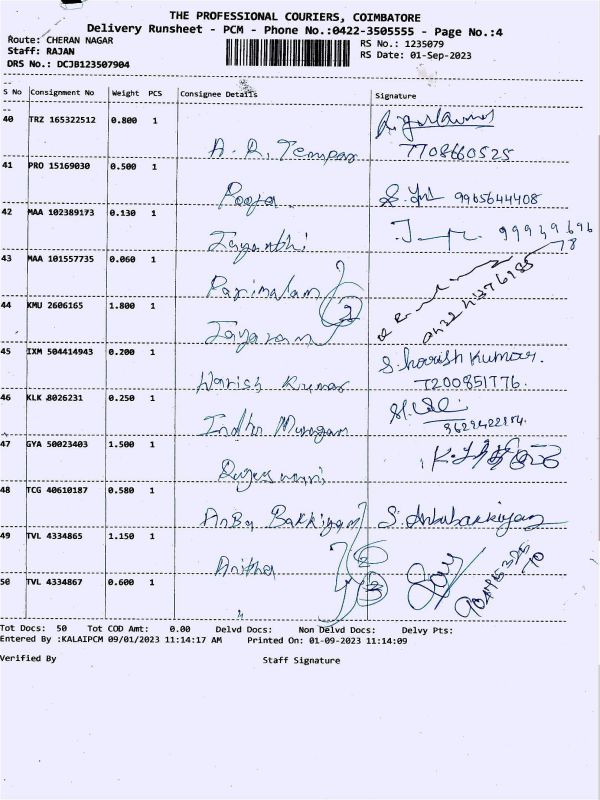 THE PROFESSIONAL COURIERS, COIMBATORE
Delivery Runsheet - PCM - Phone No.:0422-3505555 - Page No.:4
Route: CHERAN NAGAR
RS No.: 1235079
Staff: RAJAN
RS Date: 01-Sep-2023
DRS No.: DCJB123507904
S No Consignment No Weight PCS Consignee Details Signature
40 TRZ 165322512 0.800 1
A. R. Tempar 7708660525
41 PRO 15169030 0.500 1
Pooja. 9965644408
42 MAA 102389173 0.130 1
Jayanthi 99949696
78
43 MAA 101557735 0.060 1
Parimalam 2
44 KMU 2606165 1.800 1
Jayaram
45 IXM 504414943 0.200 1 S. harish Kumar.
Harish Kumar 7200851776.
46 KLK 8026231 0.250 1
Indhu Murugan
47 GYA 50023403 1.500 1
Rajeswari
48 TCG 40610187 0.580 1
Anbu Bakkiyam S. Anbubakkiyam
49 TVL 4334865 1.150 1
Anitha 2
50 TVL 4334867 0.600 1
3
"
Tot Docs: 50 Tot COD Amt: 0.00 Delvd Docs: Non Delvd Docs: Delvy Pts:
Entered By :KALAIPCM 09/01/2023 11:14:17 AM Printed On: 01-09-2023 11:14:09
Verified By Staff Signature